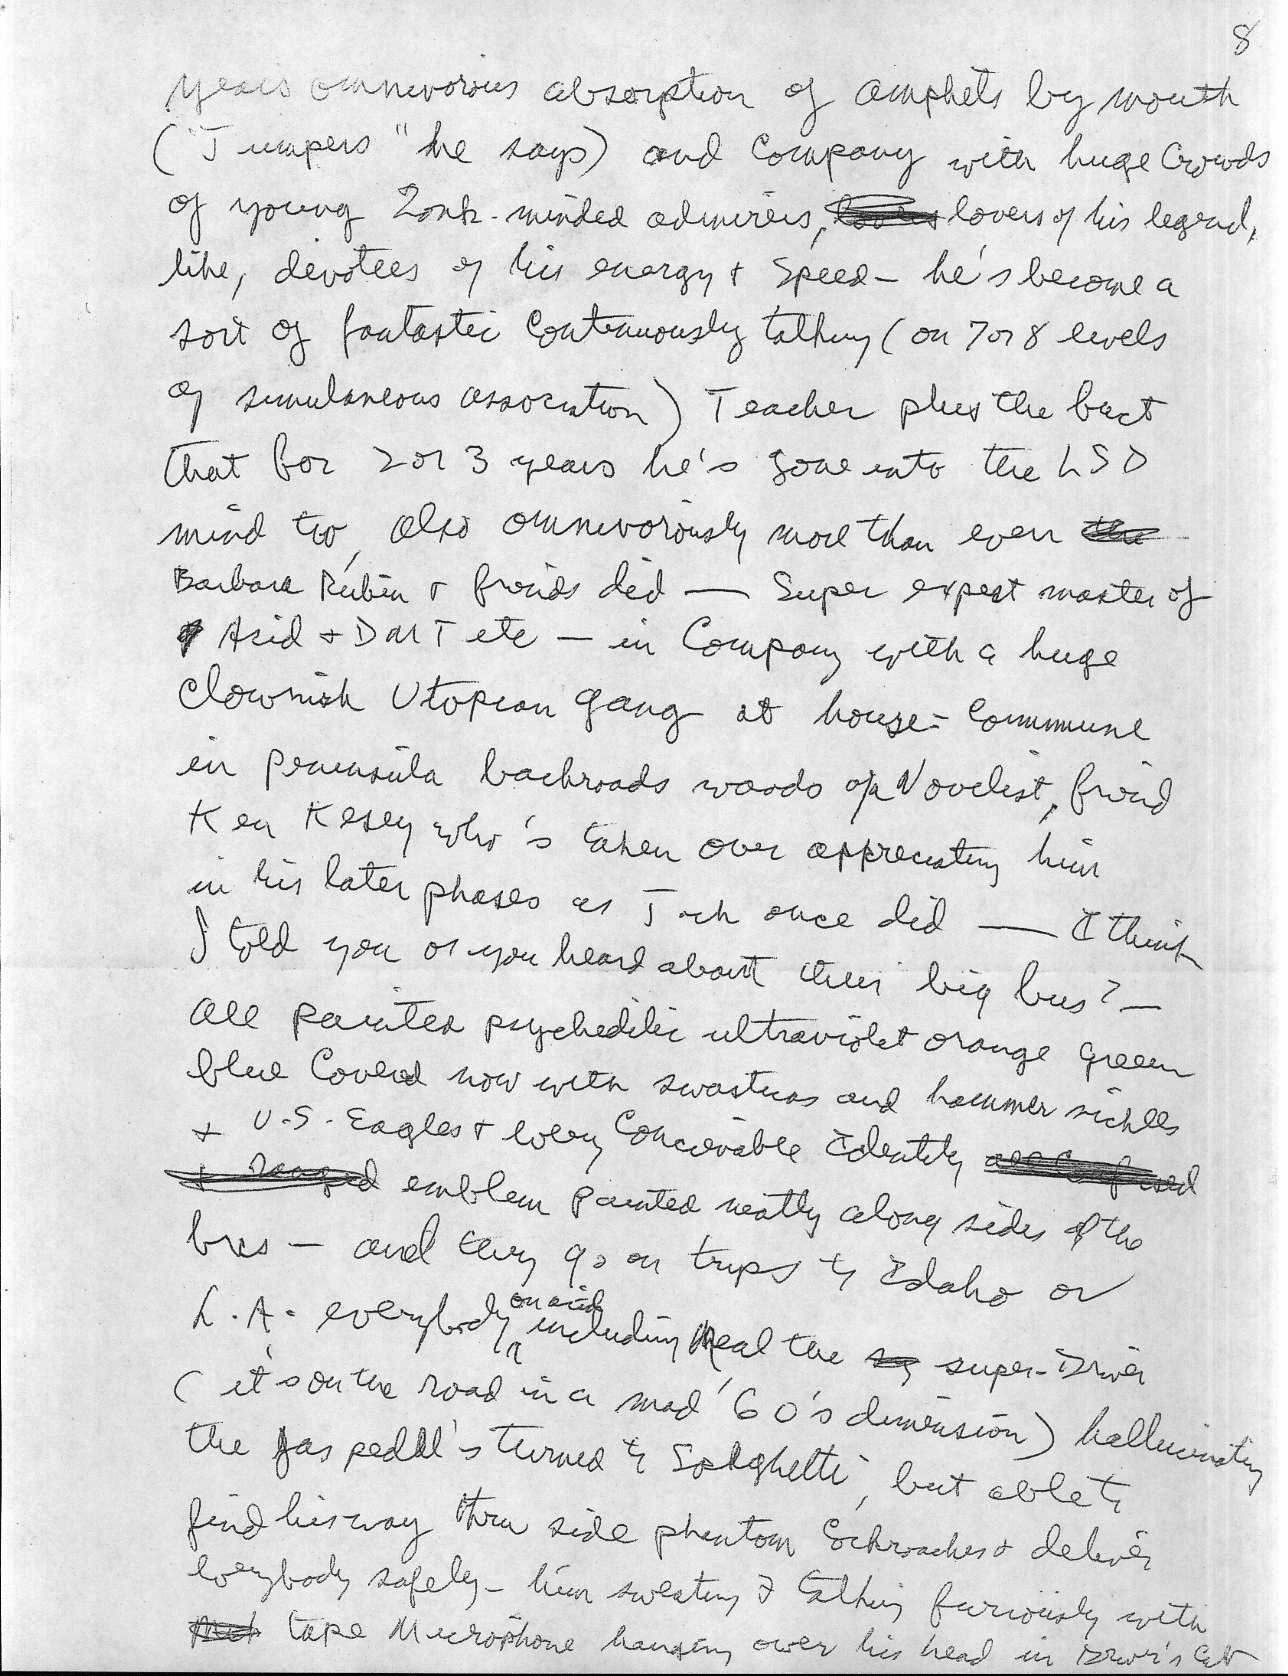 8
years omnivorous absorption of amphets by mouth
("Jumpers" he says) and Company with huge Crowds
of young Zonk-minded admirers, lovers lovers of his legend,
like, devotees of his energy + Speed – he's become a
sort of fantastic Continuously talking (on 7 or 8 levels
of simulaneous association) Teacher plus the fact
that for 2 or 3 years he's gone into the LSD
mind too, also omnivorously more than even the
Barbara Rubin + friends did — Super expert master of
Acid + DMT etc — in Company with a huge
Clownish Utopian gang at house-Commune
in peninsula backroads woods of Novelist, friend
Ken Kesey who's taken over appreciating him
in his later phases as Jack once did — I think
I told you or you heard about their big bus? —
all painted psychedilic ultraviolet orange green
blue Covered now with swastikas and hammer sickles
+ U.S. Eagles + every Conceivable Identity all Confused
emblem painted neatly along sides of the
bus – and they go on trips to Idaho or
L.A. everybody on acid including Neal the super-Driver
(it's on the road in a mad '60's dimension) hallucinating
the gas peddl's turned to Spaghetti, but able to
find his way thru side phantom Cockroaches + deliver
everybody safely – him sweating & talking furiously with
tape Microphone hanging over his head in Driver's Cab